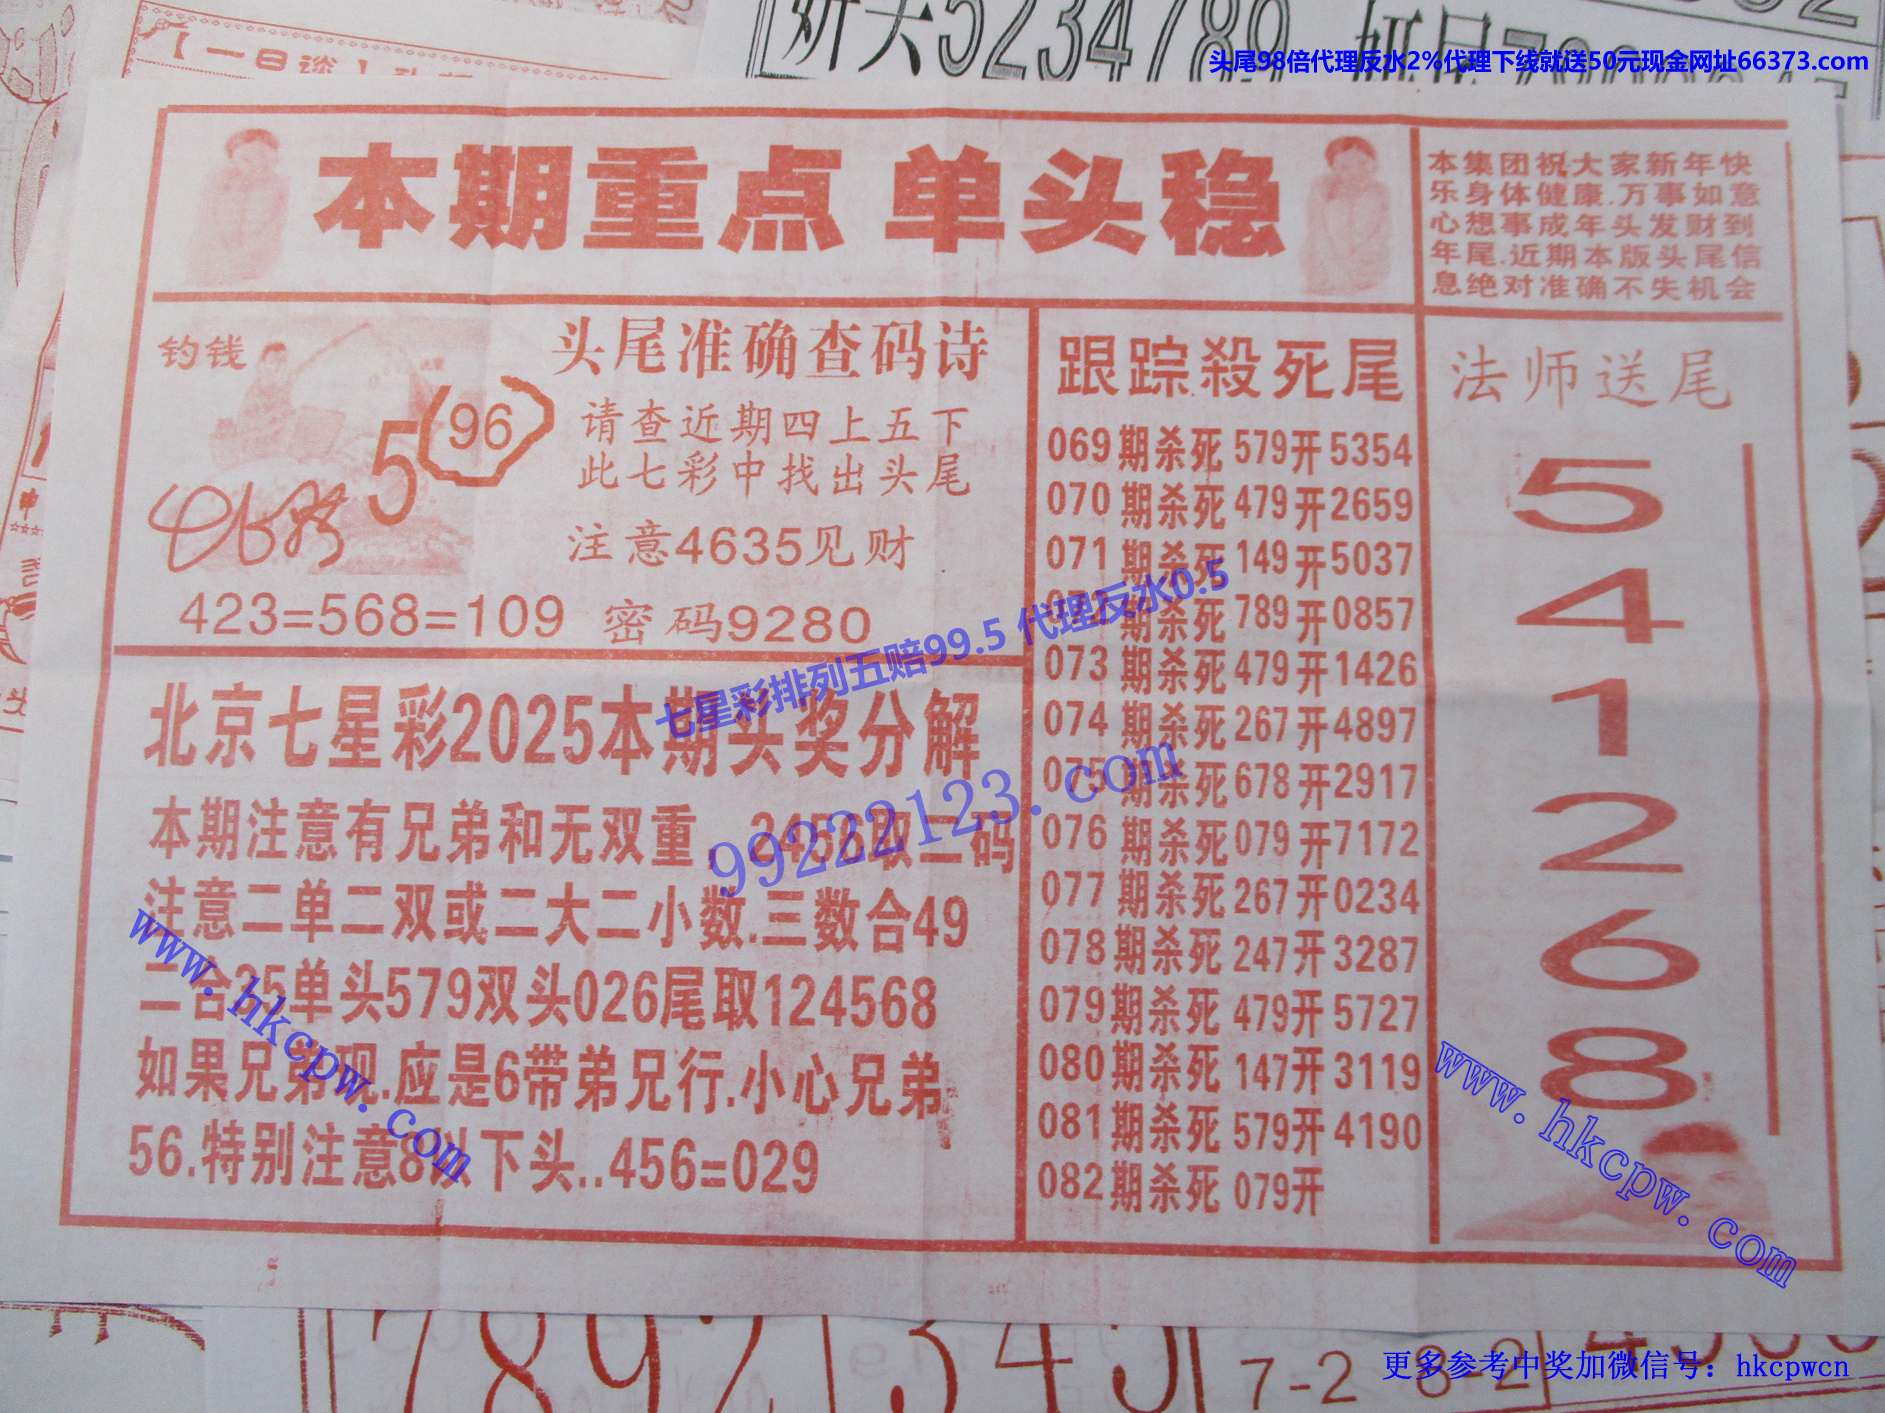 【一日谈】
奸头5234789
头尾98倍代理反水2%代理下线就送50元现金网址66373.com
本期重点 单头稳
本集团祝大家新年快
乐身体健康.万事如意
心想事成年头发财到
年尾.近期本版头尾信
息绝对准确不失机会
钓钱
5
96
头尾准确查码诗
请查近期四上五下
此七彩中找出头尾
注意4635见财
423=568=109 密码9280
北京七星彩2025本期头奖分解
本期注意有兄弟和无双重 3456取二码
注意二单二双或二大二小数.三数合49
二合35单头579双头026尾取124568
如果兄弟现.应是6带弟兄行.小心兄弟
56.特别注意8以下头..456=029
跟踪殺死尾
069期杀死579开5354
070期杀死479开2659
071期杀死149开5037
072期杀死789开0857
073期杀死479开1426
074期杀死267开4897
075期杀死678开2917
076期杀死079开7172
077期杀死267开0234
078期杀死247开3287
079期杀死479开5727
080期杀死147开3119
081期杀死579开4190
082期杀死079开
法师送尾
5
4
1
2
6
8
七星彩排列五赔99.5 代理反水0.5
99222123.com
www.hkcpw.com
www.hkcpw.com
78921345
7-2 8-2
更多参考中奖加微信号：hkcpwcn